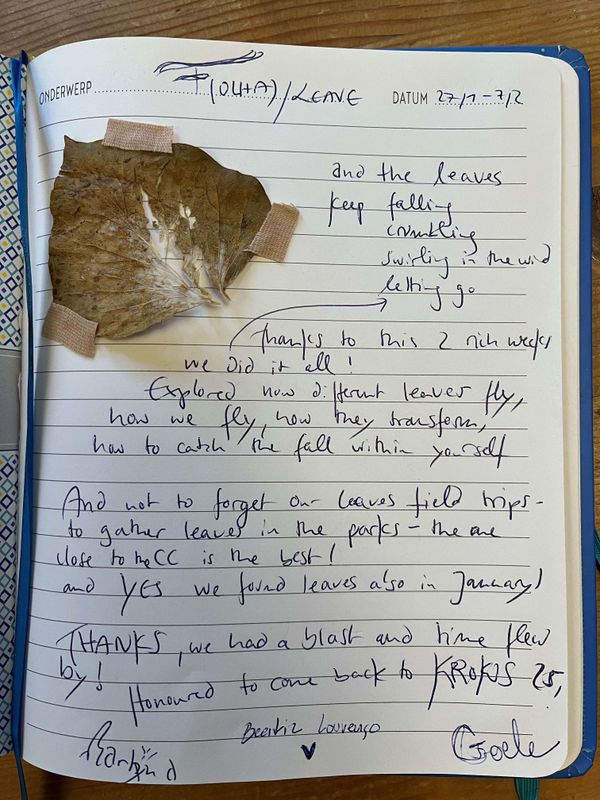 ONDERWERP (OLHA)/LEAVE DATUM 27/1-7/2
and the leaves
keep falling
crumbling
swirling in the wind
letting go
Thanks to this 2 rich weeks
we did it all!
Explored how different leaves fly,
how we fly, how they transform,
how to catch the fall within yourself
And not to forget our leaves field trips-
to gather leaves in the parks - the one
close to the CC is the best!
and YES we found leaves also in January!
THANKS, we had a blast and time flew
by!
Honoured to come back to KROKUS 25,
Beatriz Lourenço
Goele